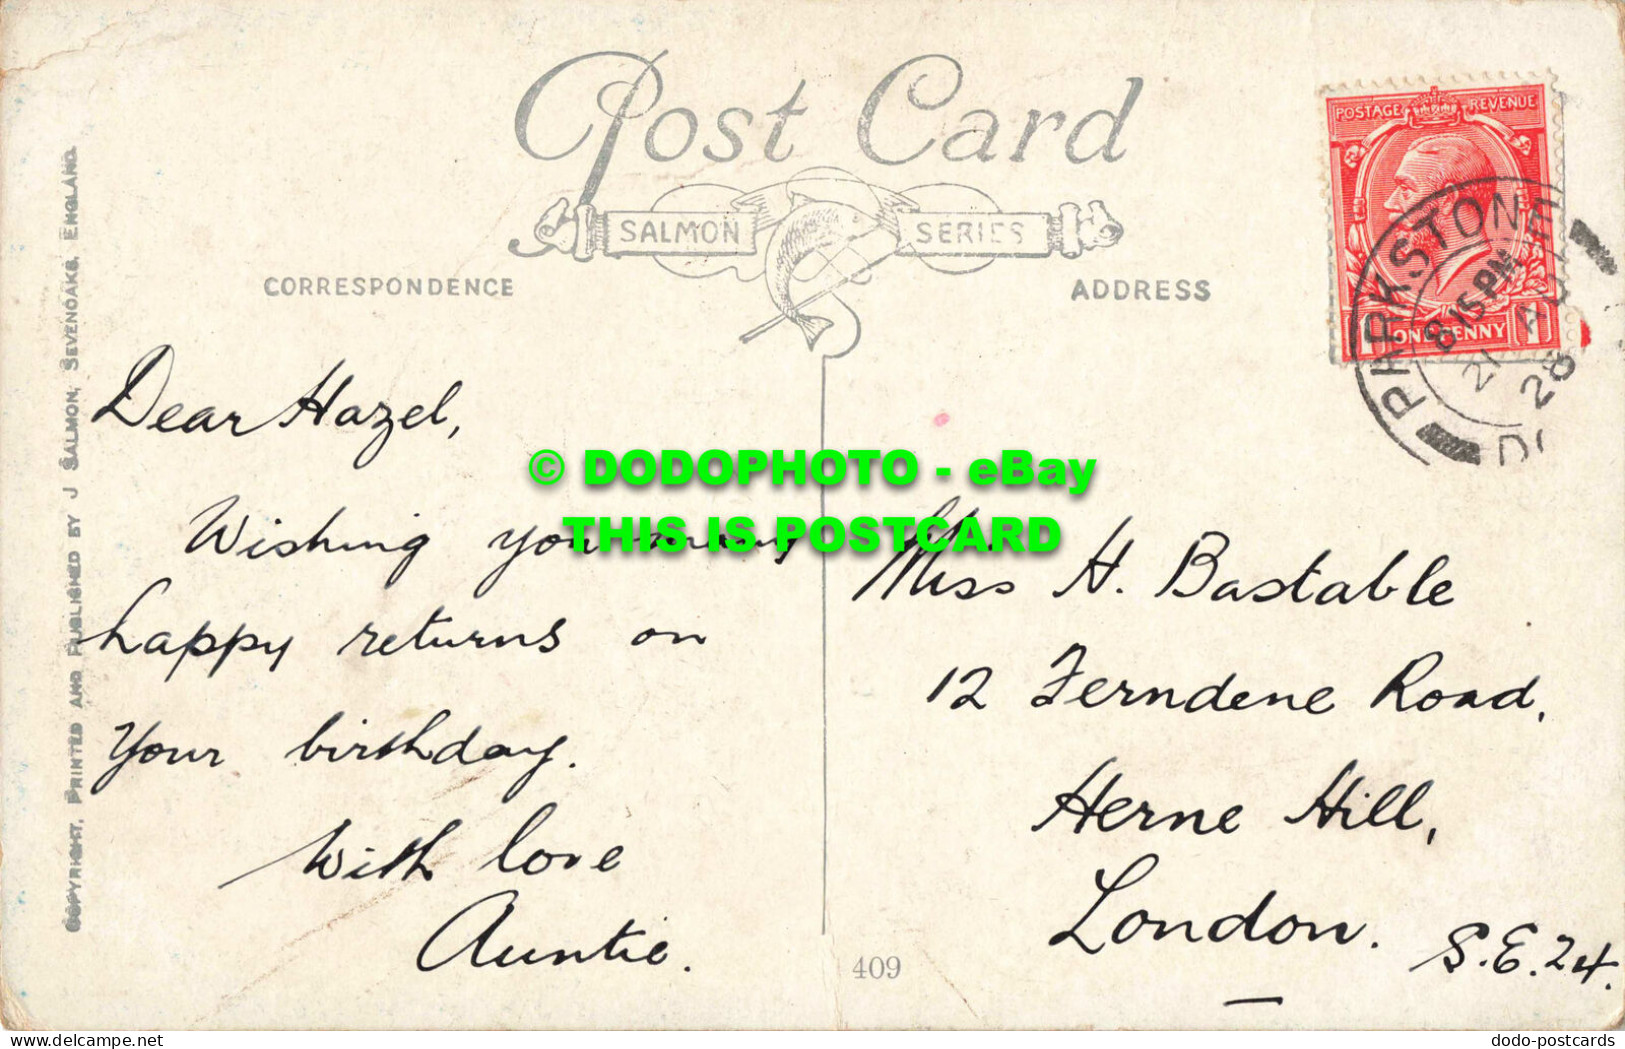 Post Card
SALMON SERIES
CORRESPONDENCE
ADDRESS
COPYRIGHT. PRINTED AND PUBLISHED BY J SALMON, SEVENOAKS, ENGLAND.
POSTAGE REVENUE
1 ONE PENNY 1
PARKSTONE
815PM
21
28
Dear Hazel,
Wishing you many
happy returns on
your birthday.
With love
Auntie.
Miss H. Bastable
12 Ferndene Road,
Herne Hill,
London. S.E.24.
409
© DODOPHOTO - eBay
THIS IS POSTCARD
www.delcampe.net
dodo-postcards